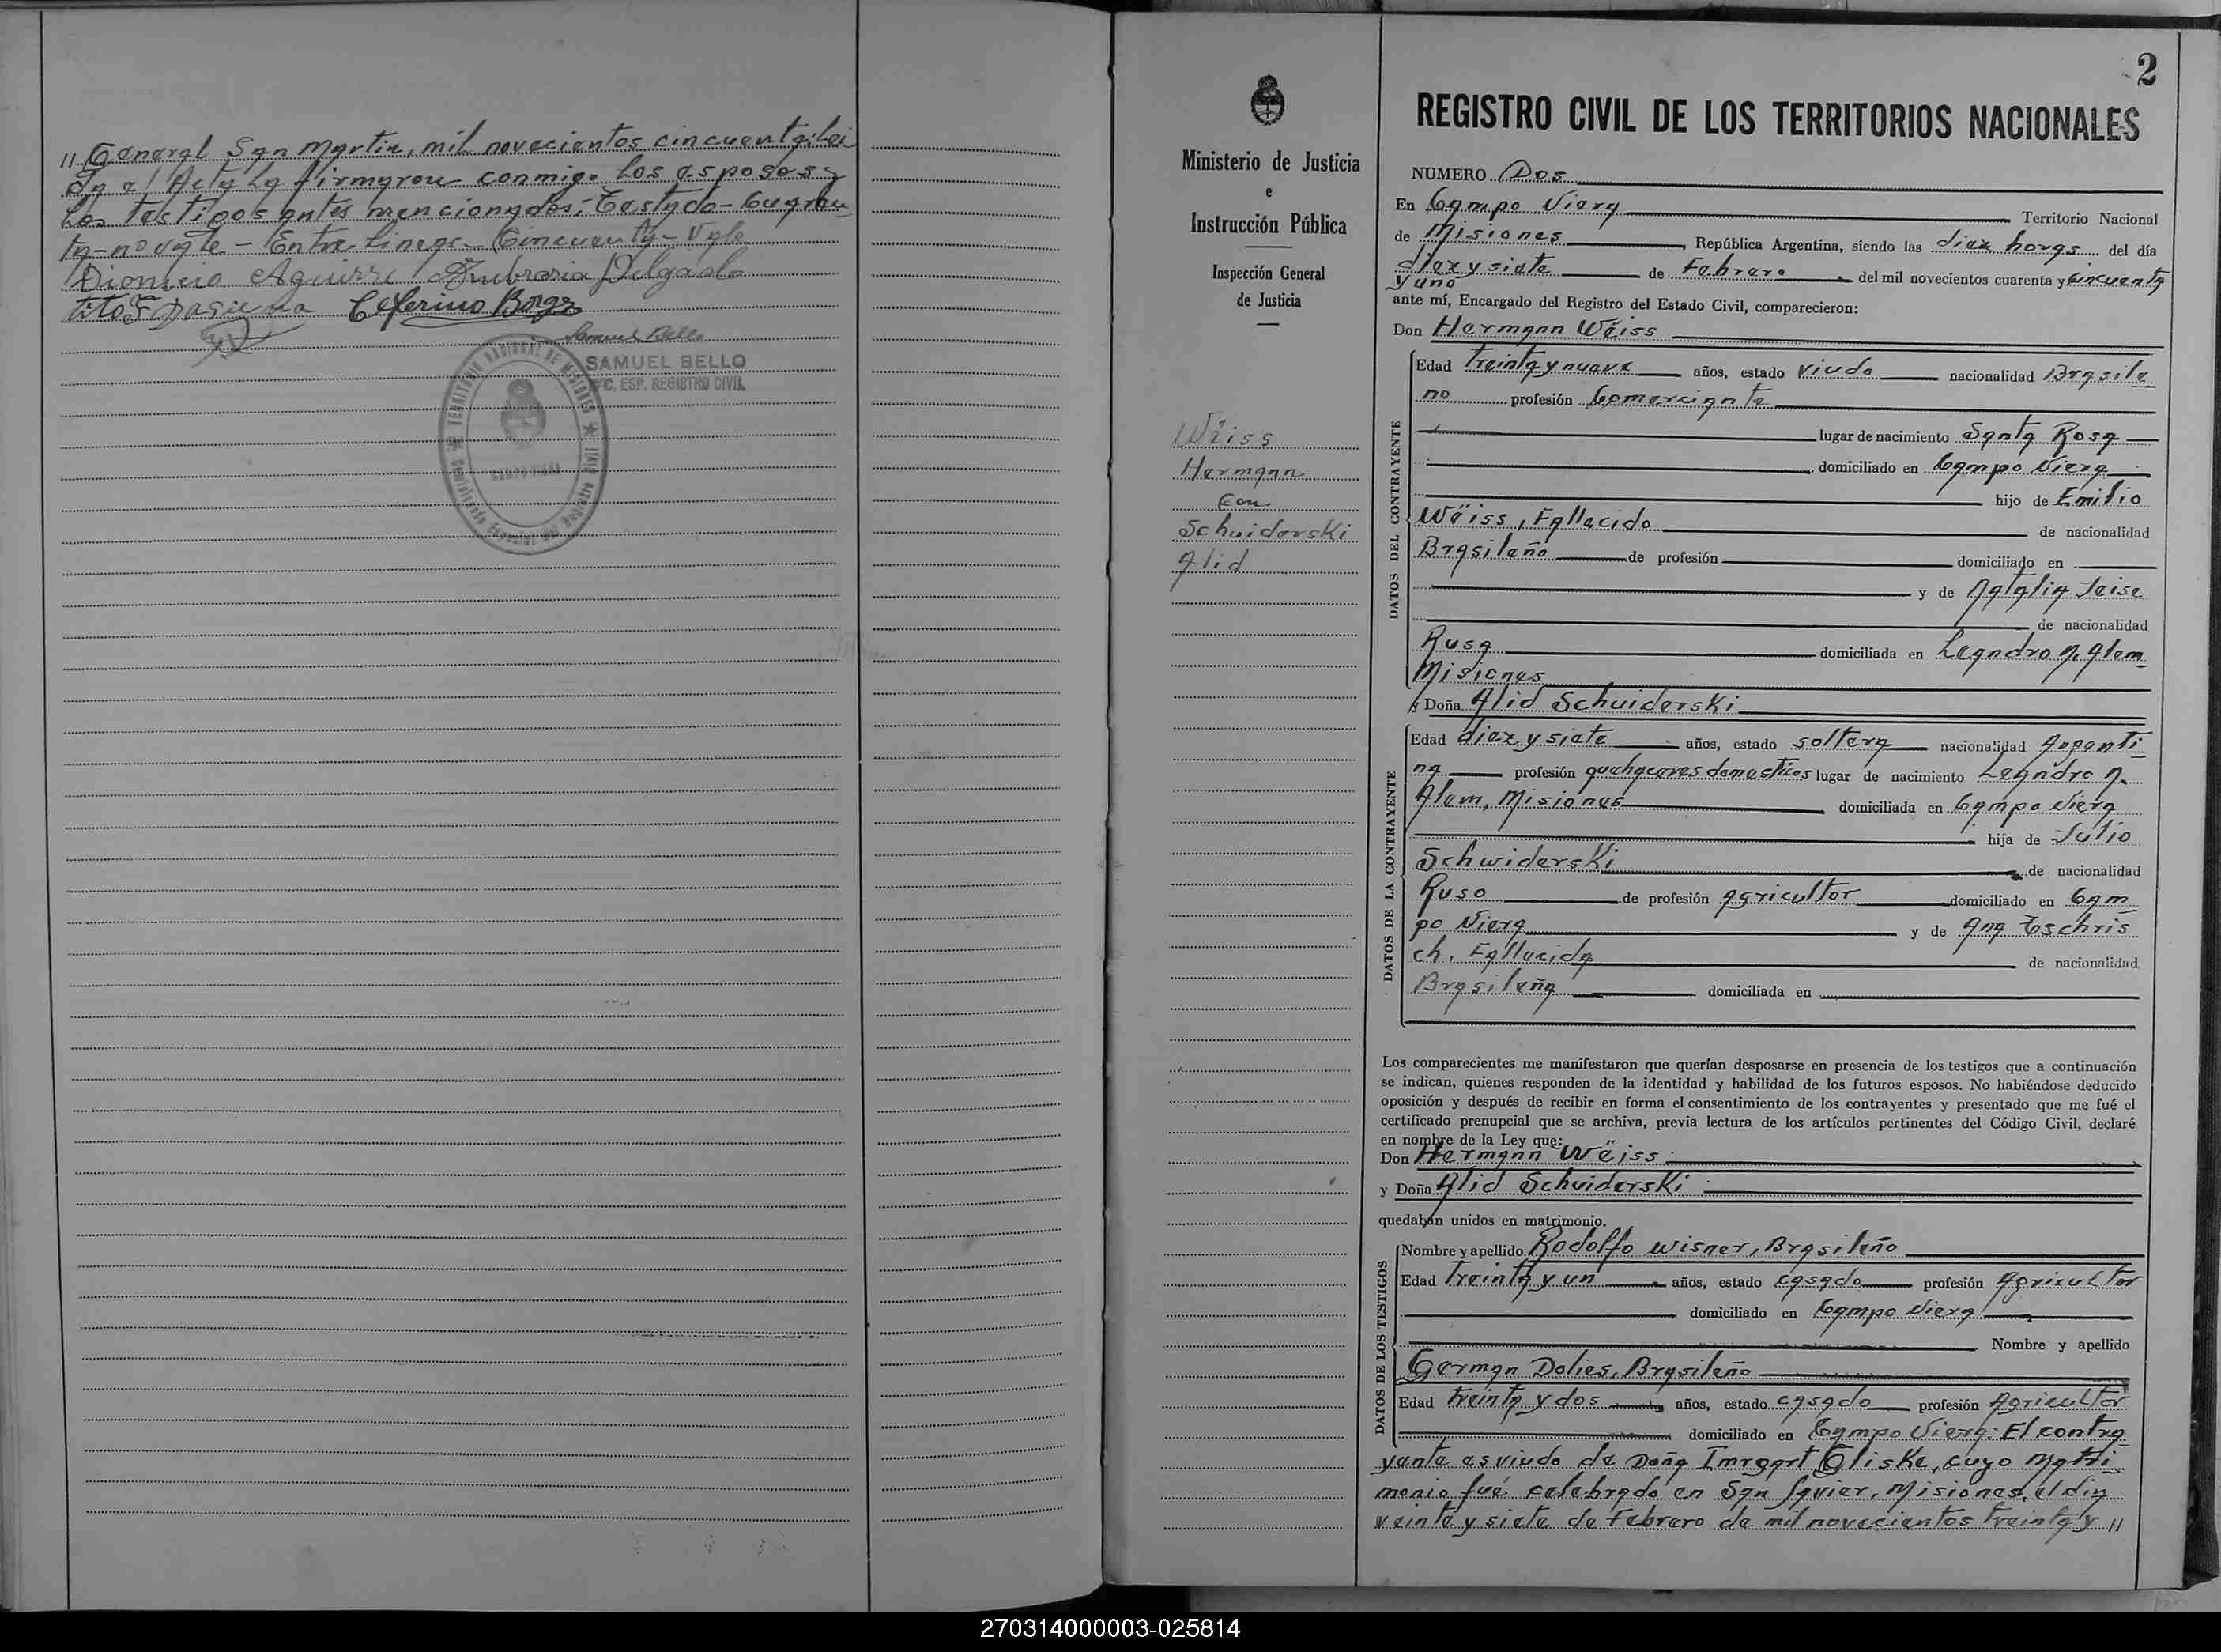 // General San Martin, mil novecientos cincuenta; Lei
da el Acta la firmaron conmigo los esposos y
los testigos antes mencionados; Testado- cuaren
ta- no vale - Entre lineas - Cincuenta - Vale
Dionicio Aguirre Ambrosia Delgado
Ceferino Borge
Samuel Bello
SAMUEL BELLO
ESP. REGISTRO CIVIL
TERRITORIO NACIONAL DE MISIONES
2
REGISTRO CIVIL DE LOS TERRITORIOS NACIONALES
Ministerio de Justicia
e
Instrucción Pública
Inspección General
de Justicia
Wëiss
Hermann
con
Schuiderski
Alid
NUMERO Dos
En Campo Viera Territorio Nacional
de Misiones, República Argentina, siendo las diez horas del día
diez y siete de Febrero del mil novecientos cuarenta y cincuenta
y uno
ante mí, Encargado del Registro del Estado Civil, comparecieron:
Don Hermann Wëiss
DATOS DEL CONTRAYENTE
Edad treinta y nueve años, estado viudo nacionalidad Brasile
no profesión Comerciante
lugar de nacimiento Santa Rosa
domiciliado en Campo Viera
hijo de Emilio
Wëiss, Fallecido de nacionalidad
Brasileño de profesión domiciliado en
y de Natalia Jeise
de nacionalidad
Rusa domiciliada en Leandro N. Alem
Misiones
y Doña Alid Schuiderski
DATOS DE LA CONTRAYENTE
Edad diez y siete años, estado soltera nacionalidad Argenti
na profesión quehaceres domesticos lugar de nacimiento Leandro N.
Alem, Misiones domiciliada en Campo Viera
hija de Julio
Schwiderski de nacionalidad
Ruso de profesión agricultor domiciliado en Cam
po Viera y de Ana Tschris
ch, Fallecida de nacionalidad
Brasileña domiciliada en
Los comparecientes me manifestaron que querían desposarse en presencia de los testigos que a continuación
se indican, quienes responden de la identidad y habilidad de los futuros esposos. No habiéndose deducido
oposición y después de recibir en forma el consentimiento de los contrayentes y presentado que me fué el
certificado prenupcial que se archiva, previa lectura de los artículos pertinentes del Código Civil, declaré
en nombre de la Ley que:
Don Hermann Wëiss
y Doña Alid Schuiderski
quedaban unidos en matrimonio.
DATOS DE LOS TESTIGOS
Nombre y apellido Rodolfo Wisner, Brasileño
Edad Treinta y un años, estado casado profesión Agricultor
domiciliado en Campo Viera
Nombre y apellido
German Dolies, Brasileño
Edad treinta y dos años, estado casado profesión Agricultor
domiciliado en Campo Viera: El contra
yente es viudo de Doña Imrgart Gliske, cuyo Matri
monio fué celebrado en San Javier, Misiones, el dia
veinte y siete de Febrero de mil novecientos treinta y //
270314000003-025814